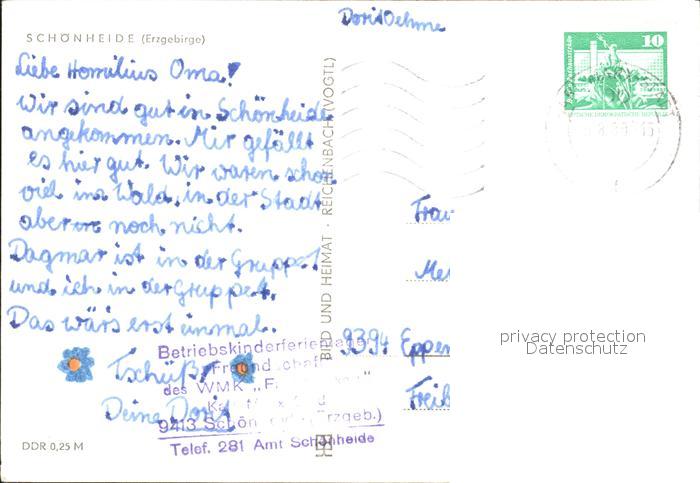 Doris Oehme
SCHÖNHEIDE (Erzgebirge)
Liebe Homilius Oma!
Wir sind gut in Schönheide
angekommen. Mir gefällt
es hier gut. Wir waren schon
viel im Wald, in der Stadt
aber noch nicht.
Dagmar ist in der Gruppe
und ich in der Gruppe
Das wärs erst einmal.
Tschüß
Deine Doris
DDR 0,25 M
BILD UND HEIMAT · REICHENBACH (VOGTL)
10
DEUTSCHE DEMOKRATISCHE REPUBLIK
Frau
9394 Eppen
Betriebskinderferienlager
des WMK
9413 Schön
Telef. 281 Amt Schönheide
privacy protection
Datenschutz